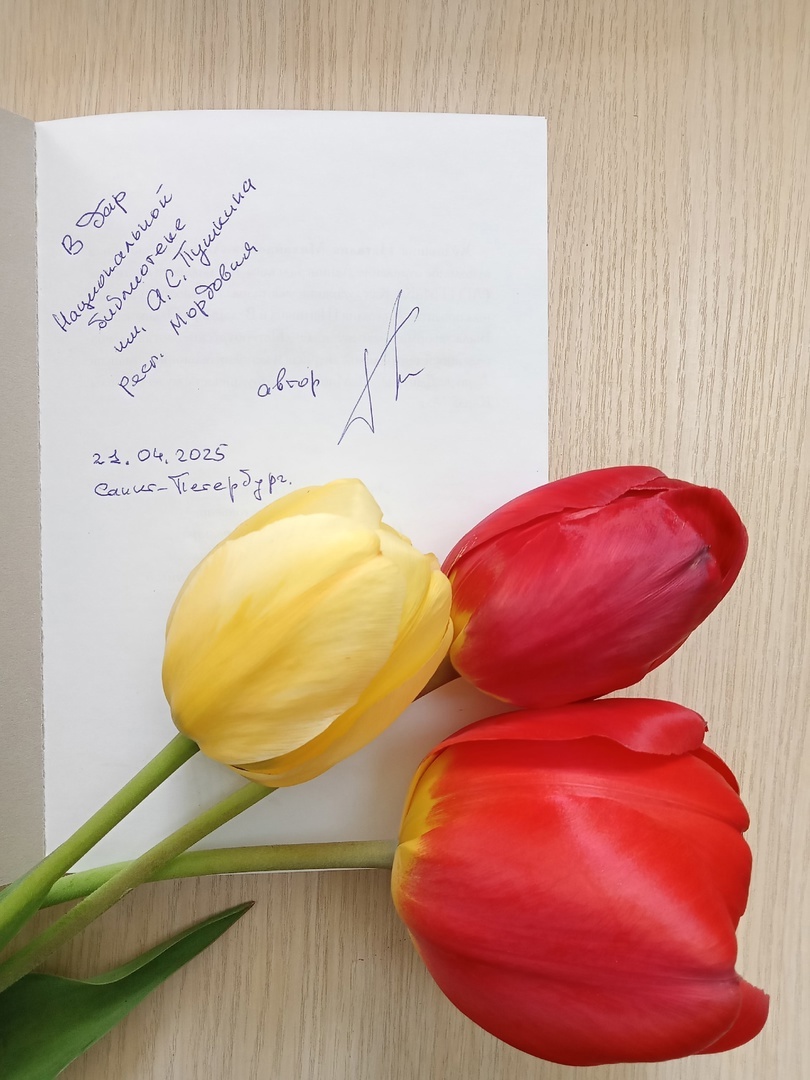 В дар
Национальной
библиотеке
им. А.С. Пушкина
респ. Мордовия
автор
21.04.2025
Санкт-Петербург.